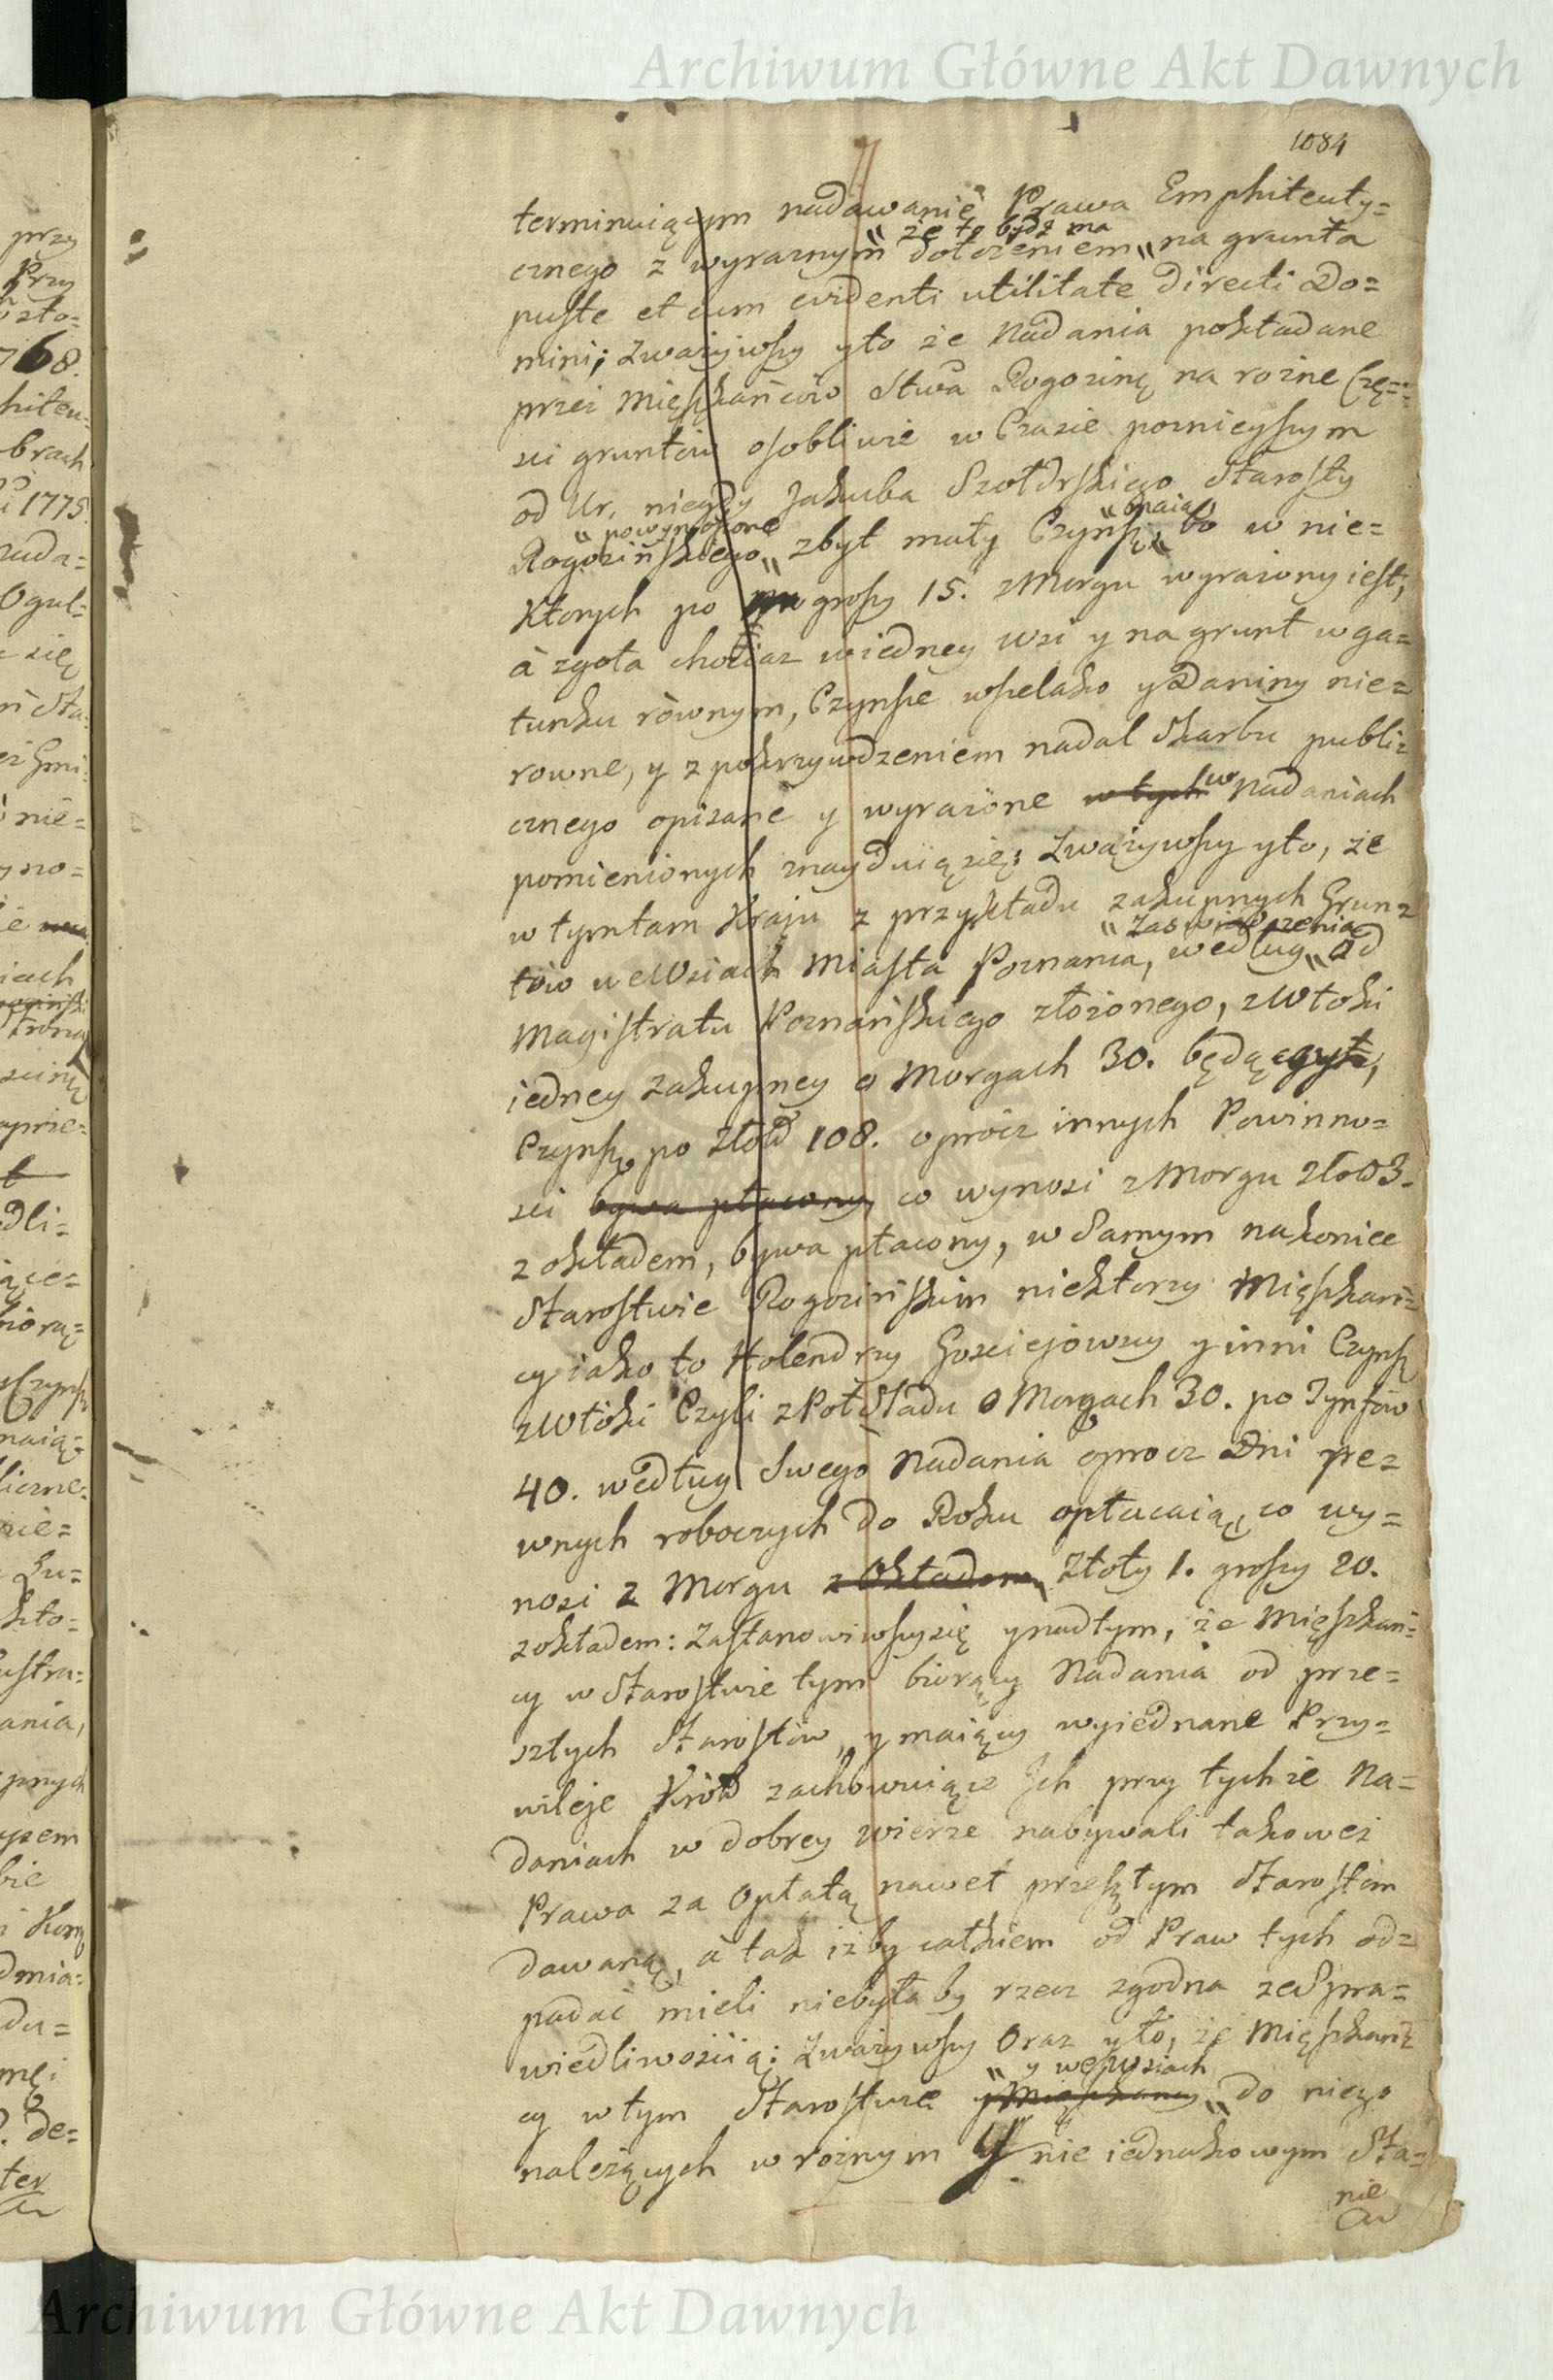 Archiwum Główne Akt Dawnych
1084
terminuiącym nadawanie Prawa Emphiteuty=
cznego z wyraznym " że to bydź ma
dołożeniem " na grunta
puste et cum evidenti utilitate Directi Do=
mini; Zważywszy y to że Nadania pokładane
przez Mięszkańców Stwa Rogozinę na rożne Czę=
sci gruntów osobliwie w Czasie poznieyszym
od Ur. niegdy Jakuba Szołdrskiego Starosty
" powynoszone " maią
Rogozińskiego " zbyt mały Czynsz, " bo w nie=
ktorych po groszy 15. z Morgu wyrażony iest,
à zgoła chociaz w iedney Wsi y na grunt w ga=
tunku równym, Czynsze wszelako y Daniny nie=
rowne, y z pokrzywdzeniem nadal Skarbu publi=
cznego opisane y wyrażone w tych w Nadaniach
pomienionych znayduią się: Zważywszy y to, że
w tymtam Kraju z przykładu zakupnych Grun=
" Zaswiadczenia
tów we Wsiach Miasta Poznania, według " od
Magistratu Poznańskiego złożonego, z Włoki
iedney zakupney o Morgach 30. będącey,
Czynsz po Złotd 108. oprócz innych Powinno=
sci bywa płacony co wynosi z Morgu Złotd 3.
z okładem, bywa płacony, w Samym nakoniec
Starostwie Rogozińskim niektorzy Mięszkań=
cy iako to Holendrzy Gosciejewscy y inni Czynsz
z Włoki Czyli z Połśladu o Morgach 30. po Tynfów
40. według Swego Nadania oprocz Dni pe=
wnych roboczych do Roku opłacaią, co wy=
nosi z Morgu z Okładem Złoty 1. groszy 20.
z okładem: Zastanowiwszy się y nad tym, że Mięszkań=
cy w Starostwie tym biorący Nadania od prze=
szłych Starostów, y maiący wyiednane Przy=
wileje Król zachowuiące Ich przy tychże Na=
daniach w dobrey wierze nabywali takoweż
Prawa za Opłatą nawet przeszłym Starostom
dawaną, à tak iżby całkiem od Praw tych od=
padać mieli niebyłaby rzecz zgodna ze Spra=
wiedliwością: Zważywszy Oraz y to, że Mięszkań=
" y we Wsiach
cy w tym Starostwie y Mięszkancy " do niego
należących w rożnym y nie iednakowym Sta=
nie
przy
Przy
768.
brach
1775.
Ogul=
się
Archiwum Główne Akt Dawnych